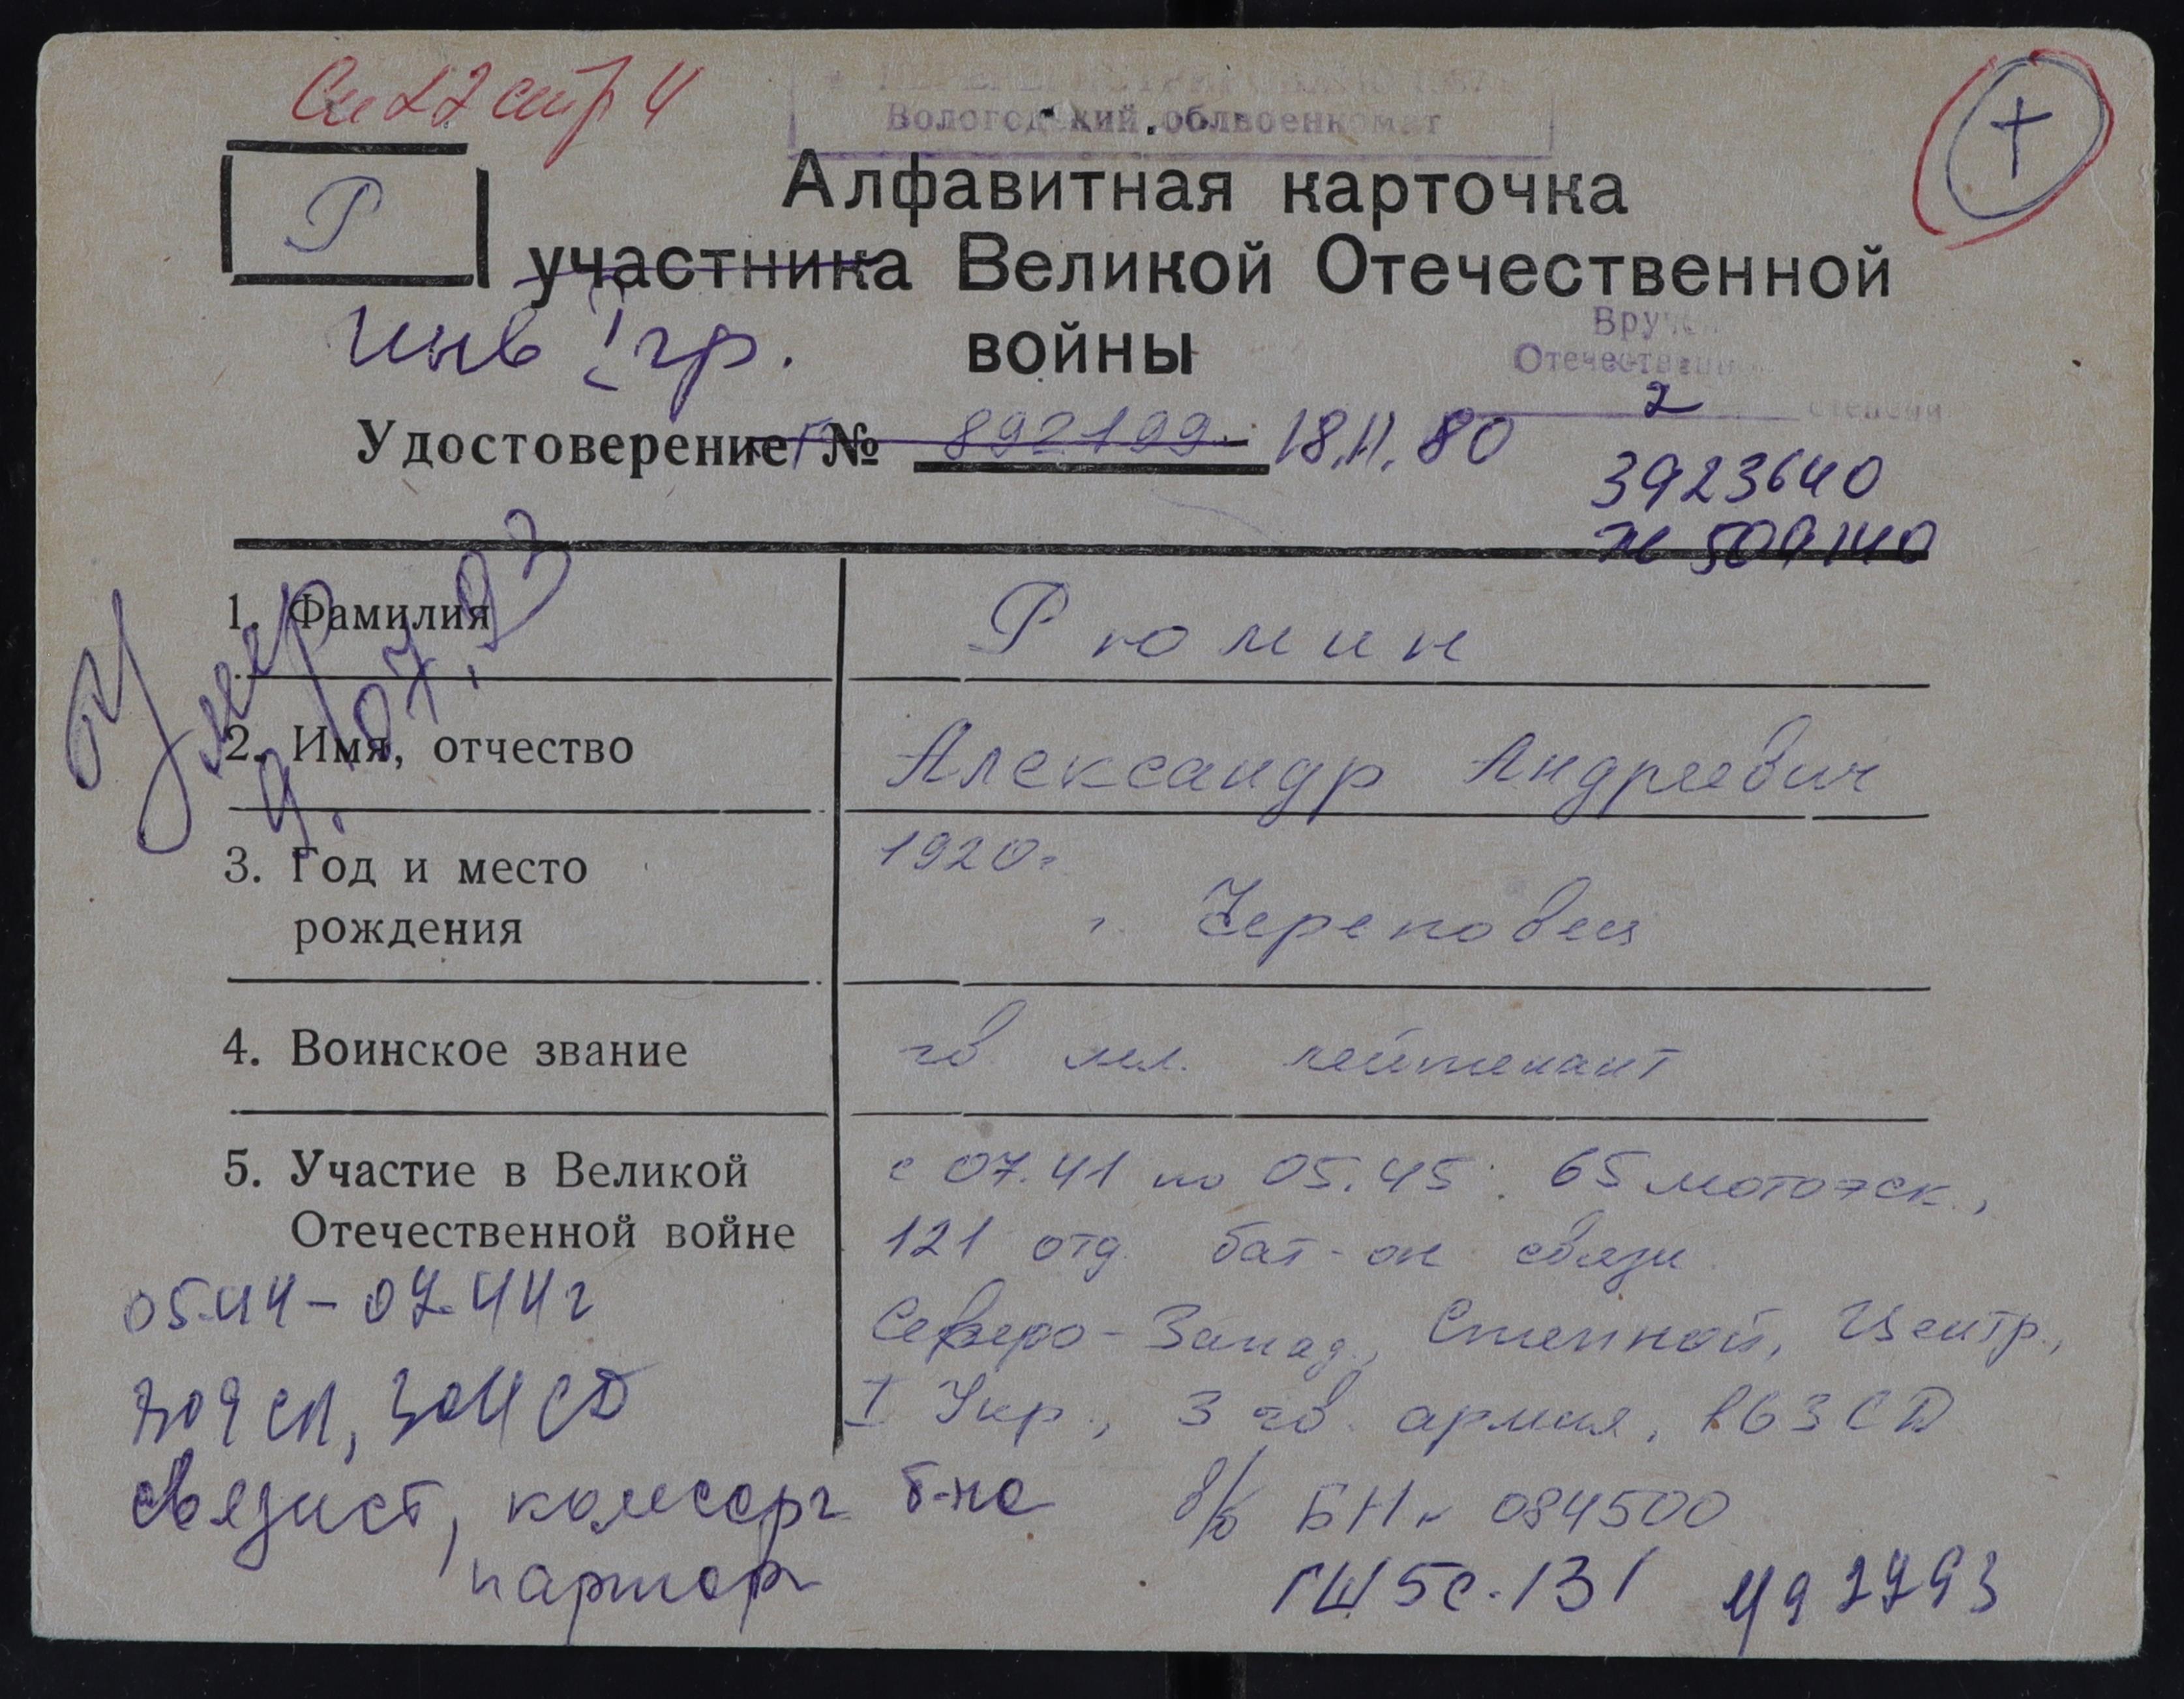 стр 4
Вологодский облвоенкомат
Р
Алфавитная карточка
участника Великой Отечественной
войны
инв I гр.
Отечествен
2 степени
Удостоверение № 892199 18.11.80
3923640
Ж 509140
Умер
9.07.93
1. Фамилия
Рюмин
2. Имя, отчество
Александр Андреевич
3. Год и место
рождения
1920г
г. Череповец
4. Воинское звание
гв. мл. лейтенант
5. Участие в Великой
Отечественной войне
с 07.41 по 05.45: 65 мотоэск.,
121 отд. бат-он связи.
Северо-Запад., Степной, Центр.,
I Укр., 3 гв. армия, 163 СД
05.44 – 07.44г
связист, комсорг б-на
парторг
в/б БН № 084500
ГШ 5с. 131